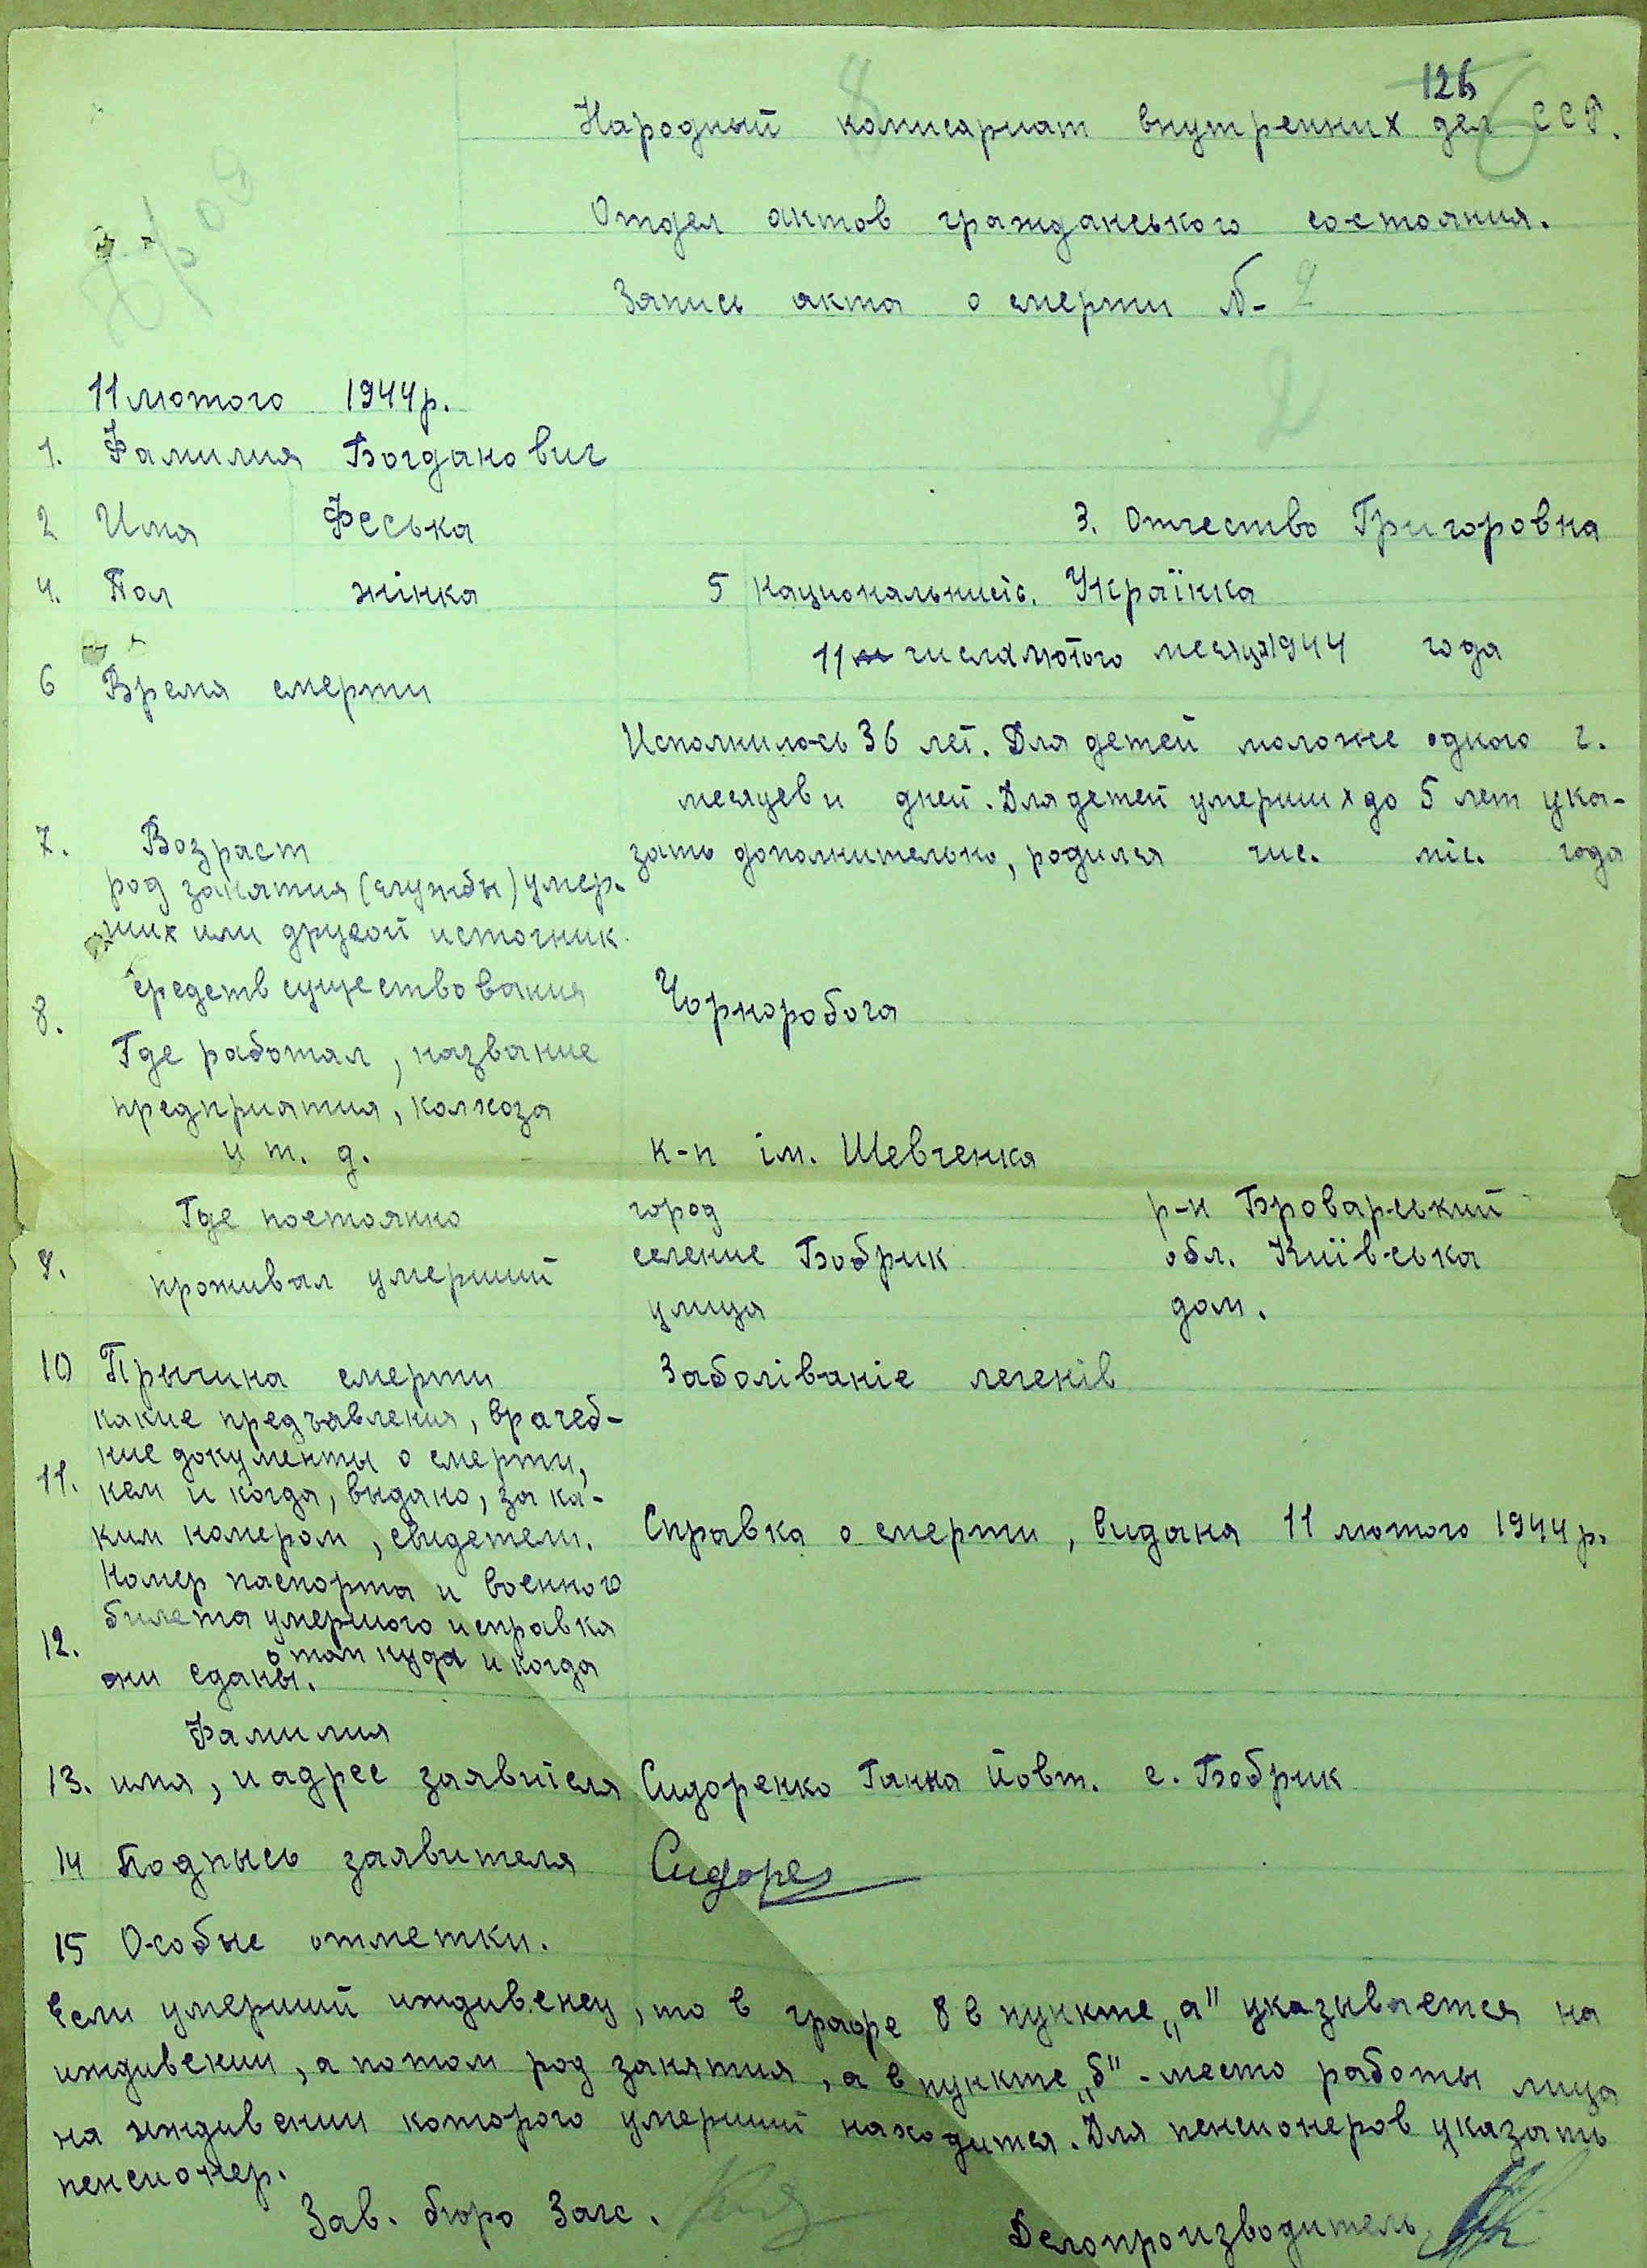 126
Народный комисариат внутренних дел ССР.
Отдел актов гражданського состояния.
Запись акта о смерти №- 2
2
11 лютого 1944 р.
1. Фамилия Богданович
2 Имя Феська 3. Отчество Григоровна
4. Пол жінка 5 Национальнисть. Українка
11 числа лютого месяця 1944 года
6 Время смерти
Исполнилось 36 лет. Для детей моложе одного г.
месяцев и дней. Для детей умерших до 5 лет ука-
7. Возраст зать дополнительно, родился чис. міс. года
род занятия (службы) умер-
ших или другой источник
средств существования Чорноробоча
8.
Где работал, название
предприятия, колхоза
и т. д. к-п ім. Шевченка
Где постоянно город р-н Броварський
9. проживал умерший селение Бобрик обл. Київська
улица дом.
10 Прычина смерти Заболіваніе легенів
какие предъявления, врачеб-
ние документы о смерти,
11. кем и когда, выдано, за ка-
ким номером, свидетели. Справка о смерти, видана 11 лютого 1944 р.
Номер паспорта и военного
билета умершого и справка
12. о том куда и когда
они сданы.
Фамилия
13. имя, и адрес заявителя Сидоренко Ганна Йовт. с. Бобрик
14 Подпысь заявителя Сидоре
15 Особые отметки.
Если умерший иждивенец, то в графе 8 в пункте „а" указывается на
иждивении, а потом род занятия, а в пункте „б" - место работы лица
на иждивении которого умерший находится. Для пенсионеров указать
пенсионер.
Зав. бюро Загс. Делопроизводитель